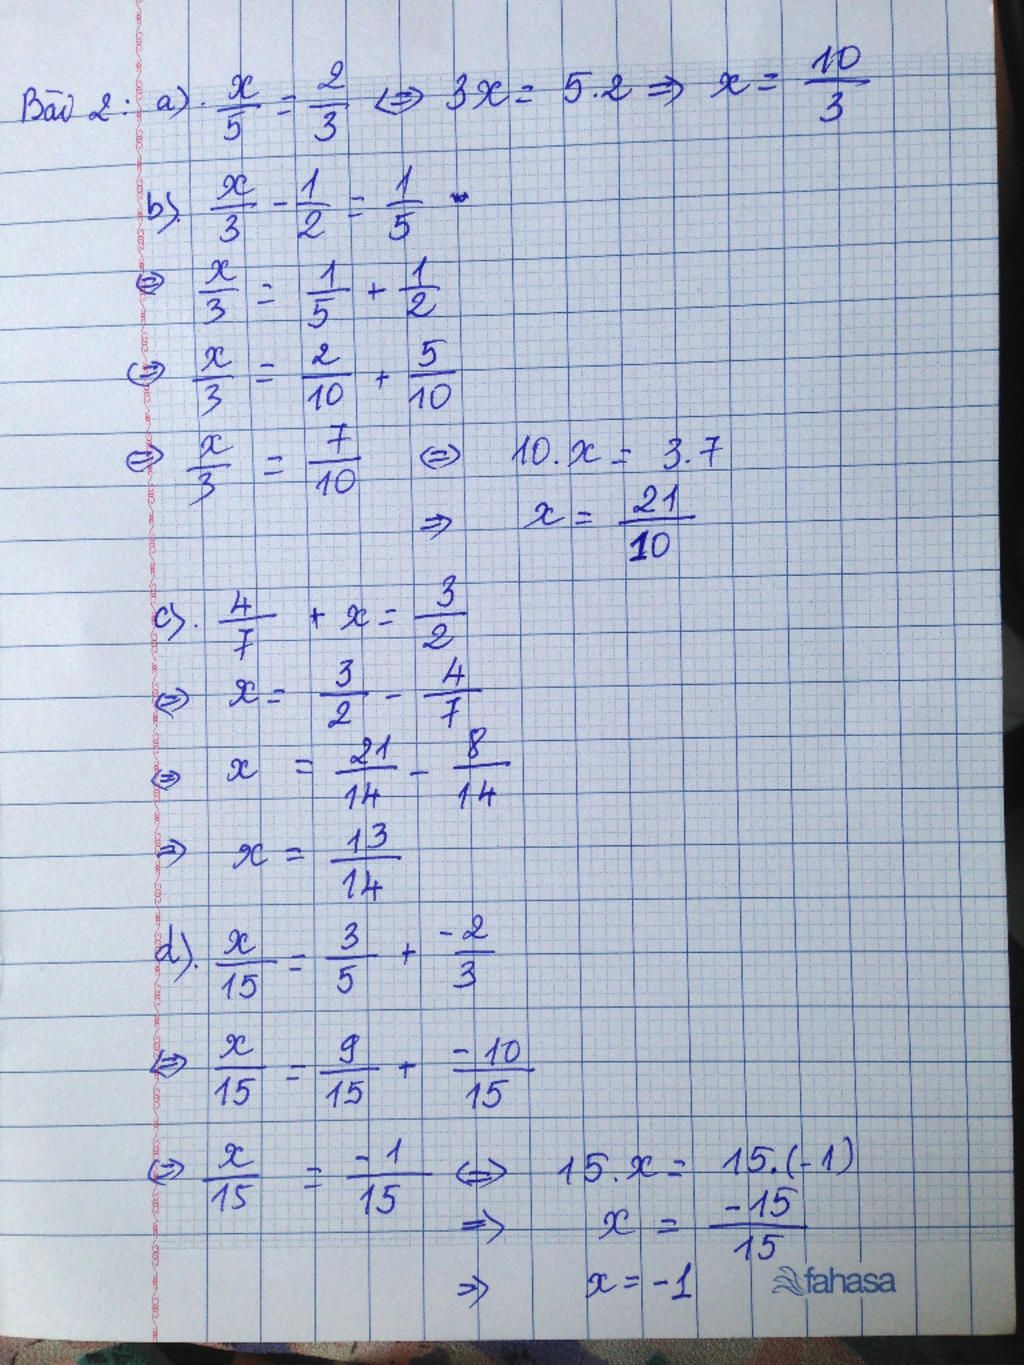 Bài 2: a). x/5 = 2/3 ⇔ 3x = 5.2 ⇒ x = 10/3
b). x/3 - 1/2 = 1/5
⇔ x/3 = 1/5 + 1/2
⇔ x/3 = 2/10 + 5/10
⇔ x/3 = 7/10 ⇔ 10.x = 3.7
⇒ x = 21/10
c). 4/7 + x = 3/2
⇔ x = 3/2 - 4/7
⇔ x = 21/14 - 8/14
⇒ x = 13/14
d). x/15 = 3/5 + -2/3
⇔ x/15 = 9/15 + -10/15
⇔ x/15 = -1/15 ⇔ 15.x = 15.(-1)
⇒ x = -15/15
⇒ x = -1
fahasa